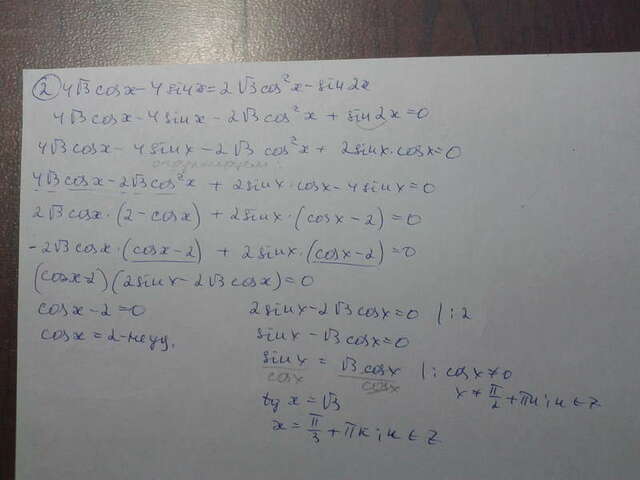 ② 4√3 cosx - 4 sinx = 2√3 cos²x - sin2x
4√3 cosx - 4 sinx - 2√3 cos²x + sin2x = 0
4√3 cosx - 4 sinx - 2√3 cos²x + 2sinx·cosx = 0
4√3 cosx - 2√3 cos²x + 2sinx·cosx - 4sinx = 0
2√3 cosx·(2 - cosx) + 2sinx·(cosx - 2) = 0
-2√3 cosx·(cosx - 2) + 2sinx·(cosx - 2) = 0
(cosx-2)(2sinx - 2√3 cosx) = 0
cosx - 2 = 0
cosx = 2 - не
2sinx - 2√3 cosx = 0 |:2
sinx - √3 cosx = 0
sinx/cosx = √3 cosx/cosx |: cosx ≠ 0
x ≠ π/2 + πк; к ∈ Z
tg x = √3
x = π/3 + πк; к ∈ Z